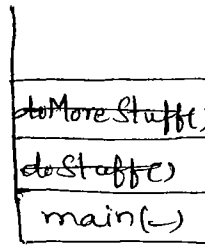 doMoreStuff()
doStuff()
main(-)